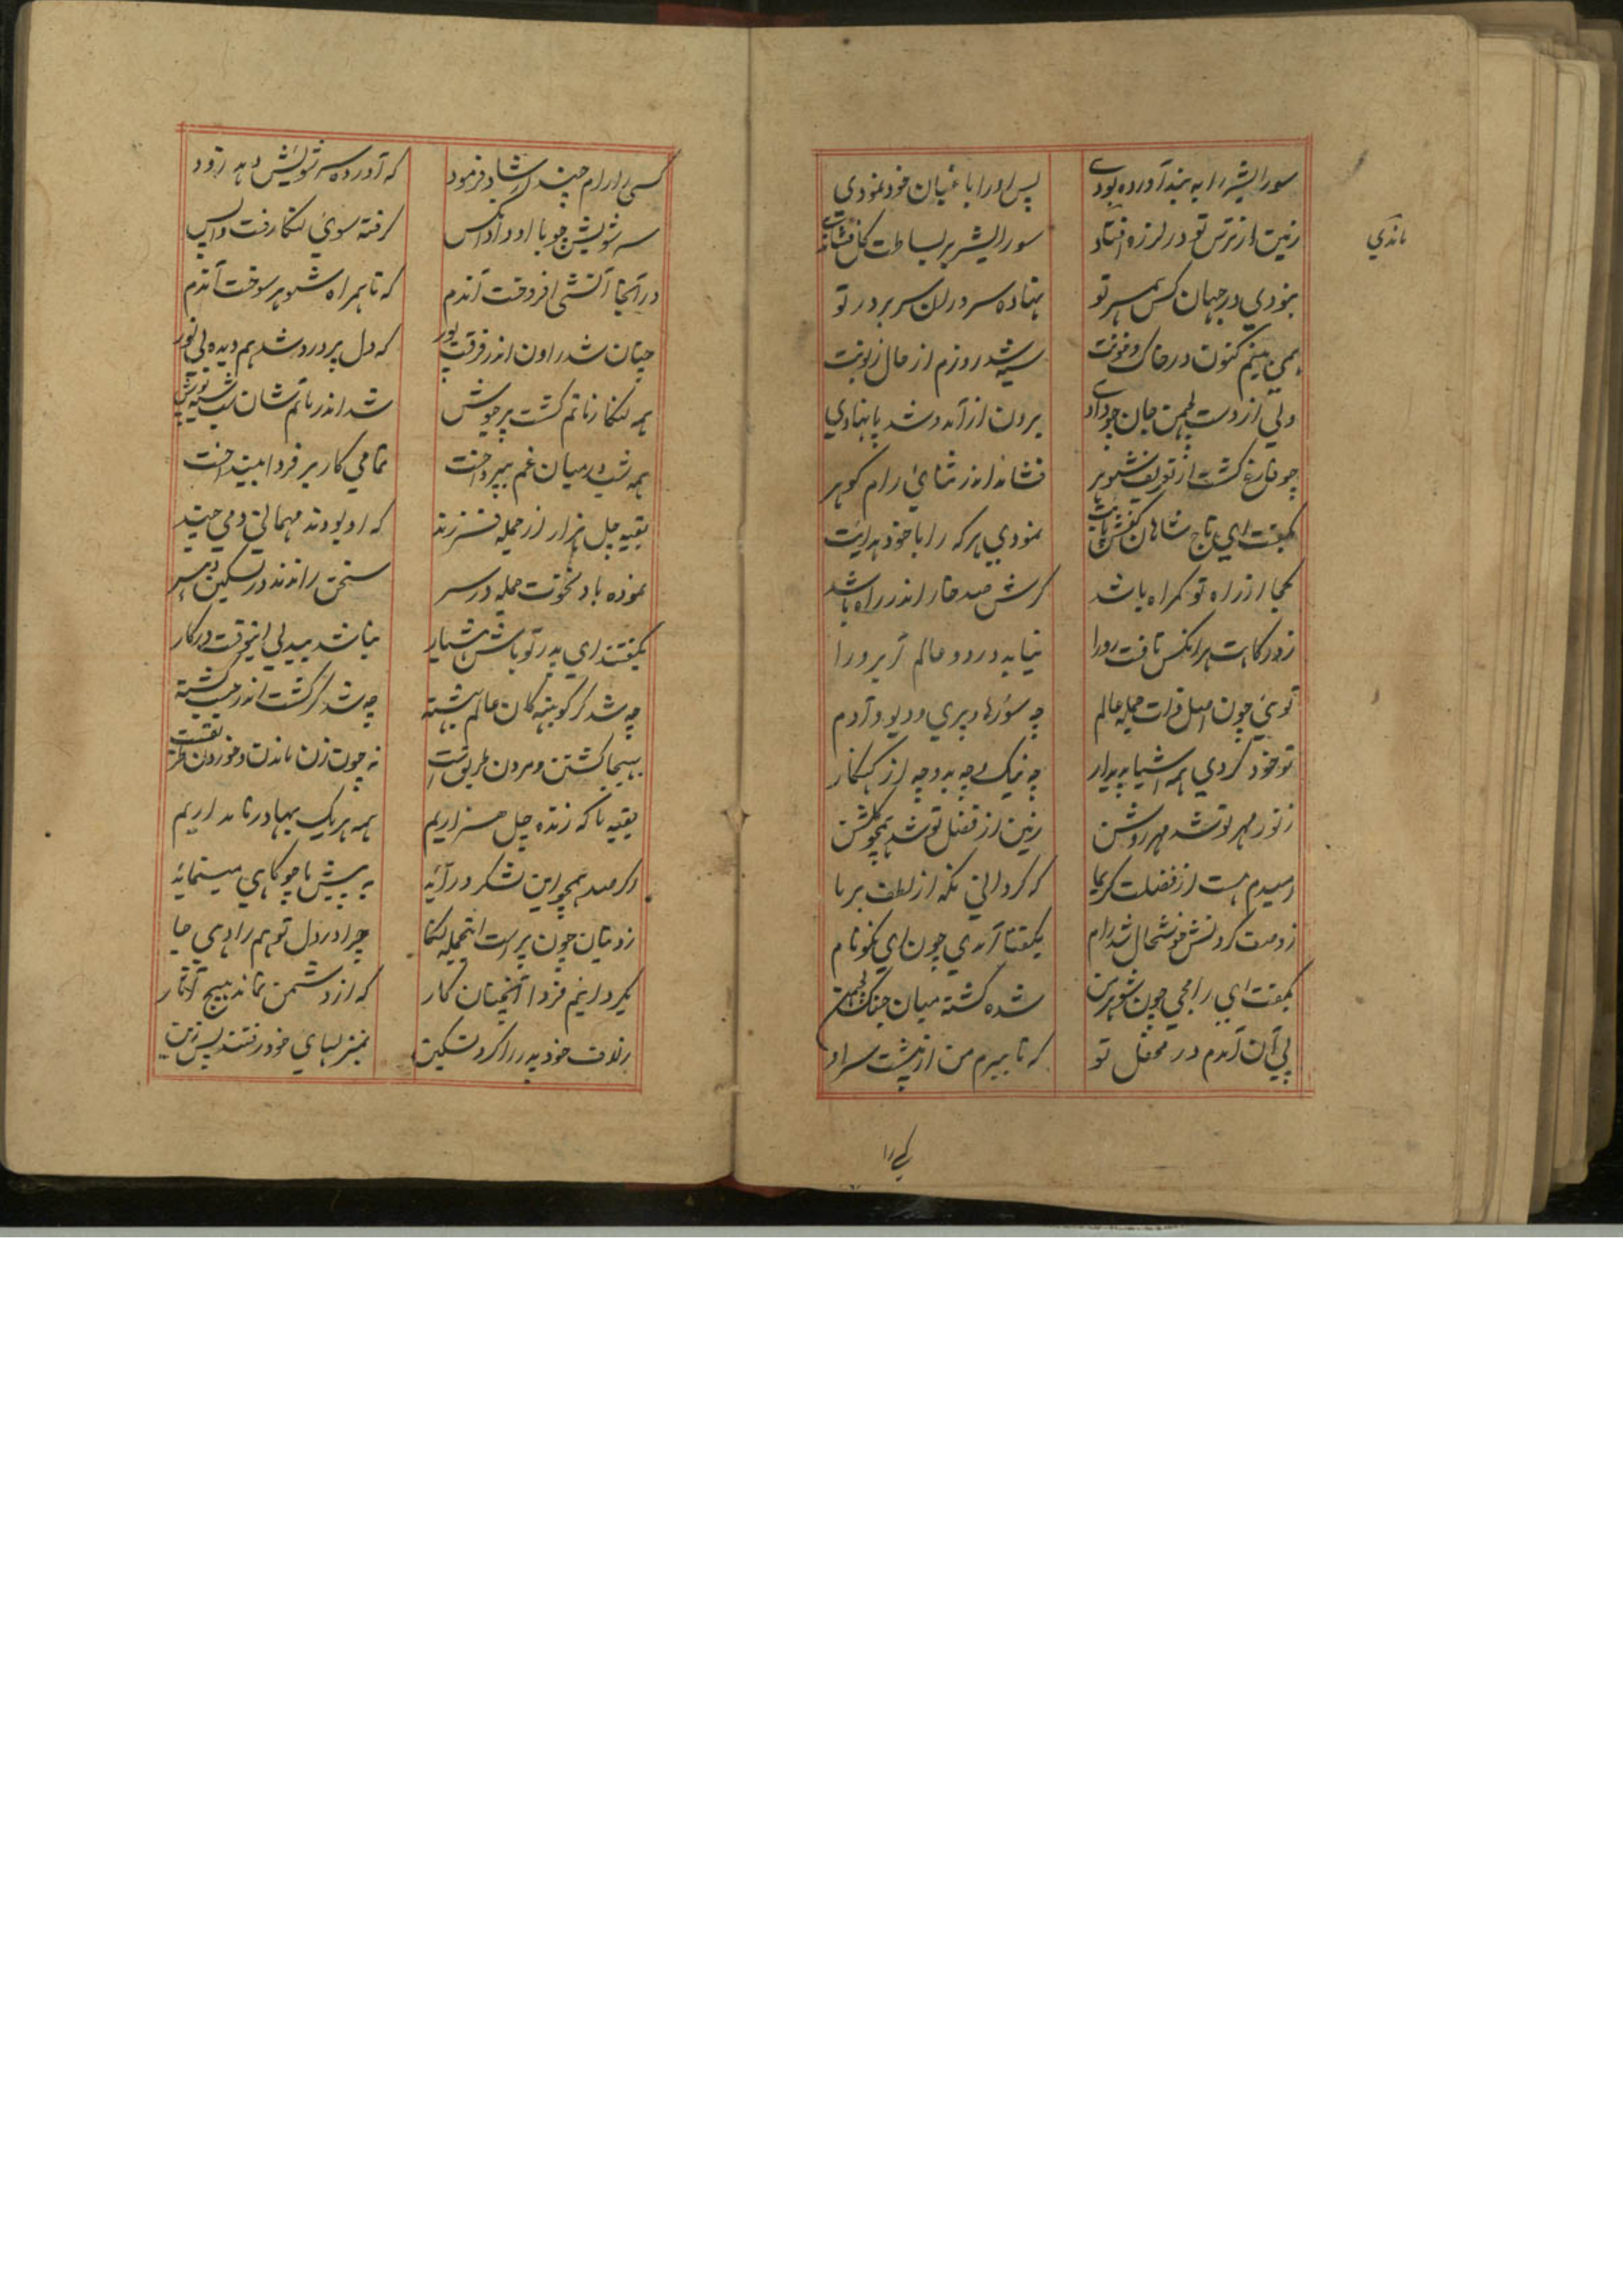 سورالیشر را به بند آورده بودی پس او را باغبان خود نمودی
زمین از ترس تو در لرزه افتاد سورالیشر بر بساطت گل فشاندی
ماندی
نبودی در جهان کس همسر تو نهاده سروران سر بر در تو
همی بینم کنون در خاک و خونت سیه شد روزم از حال زبونت
ولی از دست لچمن جان چو دادی برون از آمد و شد پا نهادی
چو فارغ گشت از تعریف شوهر فشاند اندر ثنای رام گوهر
بگفت ای تاج شاهان کفش پایت نمودی هر که را با خود هدایت
کجا از راه تو گمراه باشد گرش صد خار اندر راه باشد
ز درگاهت هر آنکس تافت رو را نیابد در دو عالم آبرو را
توئی چون اصل ذرات جمله عالم چه سورها و پری و دیو و آدم
تو خود کردی همه اشیا پدیدار چه نیک و چه بد و چه از گنهکار
ز نور مهر تو شد مهر روشن زمین از فضل تو شد همچو گلشن
امیدم هست از فضلت کریما که گردانی نگه از لطف بر ما
ز وصف کردنش خوشحال شد رام بگفتا آمدی چون ای نکونام
بگفت ای رامجی چون شوهر من شده کشته میان جنگ لچمن
پی آن آمدم در محفل تو که تا بیرم من از پیشت سر او
کسی را
کسی را رام چند ارشاد فرمود که آورده سر شویش دهد زود
سر شویش چو با او داد آنکس گرفته سوی لنکا رفت واپس
در آنجا آتشی افروخت آندم که تا همراه شوهر سوخت آندم
چنان شد راون اندر فرقت پور که دل پر درد شد هم دیده بی نور
همه لنکا ز ماتم گشت پر جوش شد اندر ماتم شان شب سیه پوش
همه شب در میان غم بپرداخت تمامی کار بر فردا بینداخت
بقیه چل هزار از جمله فرزند که او بودند مهمان دمی چند
نموده باد نخوت جمله در سر سخن راندند در تسکین
بگفتند ای پدر تو باش هشیار نباشد بیدلی اینوقت درکار
چه شد گر کوبنهه کان عالم بهشته چه شد گر گشت اندرجیت کشته
بهیجا کشتن و مردن طریق است نه چون زن ماندن و خوردن طریقست
بقیه ما که زنده چل هزاریم همه هر یک بهادر نامداریم
اگر صد همچو این لشکر درآید به پیش ما چو کاهی مینماید
زدیتان چون پر است اینجمله لنکا چرا در دل تو هم را دهی جا
بگردانیم فردا آنچنان کار که از دشمن نماند هیچ آثار
ز لاف خود پدر را کرد تسکین بمنزلهای خود رفتند پس زین